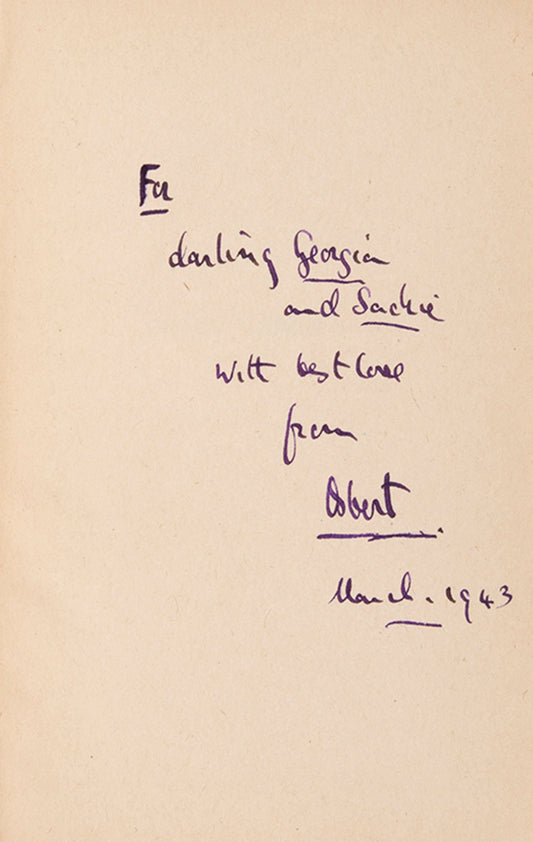 For
darling Georgia
and Sachie
with best love
from
Osbert
March. 1943